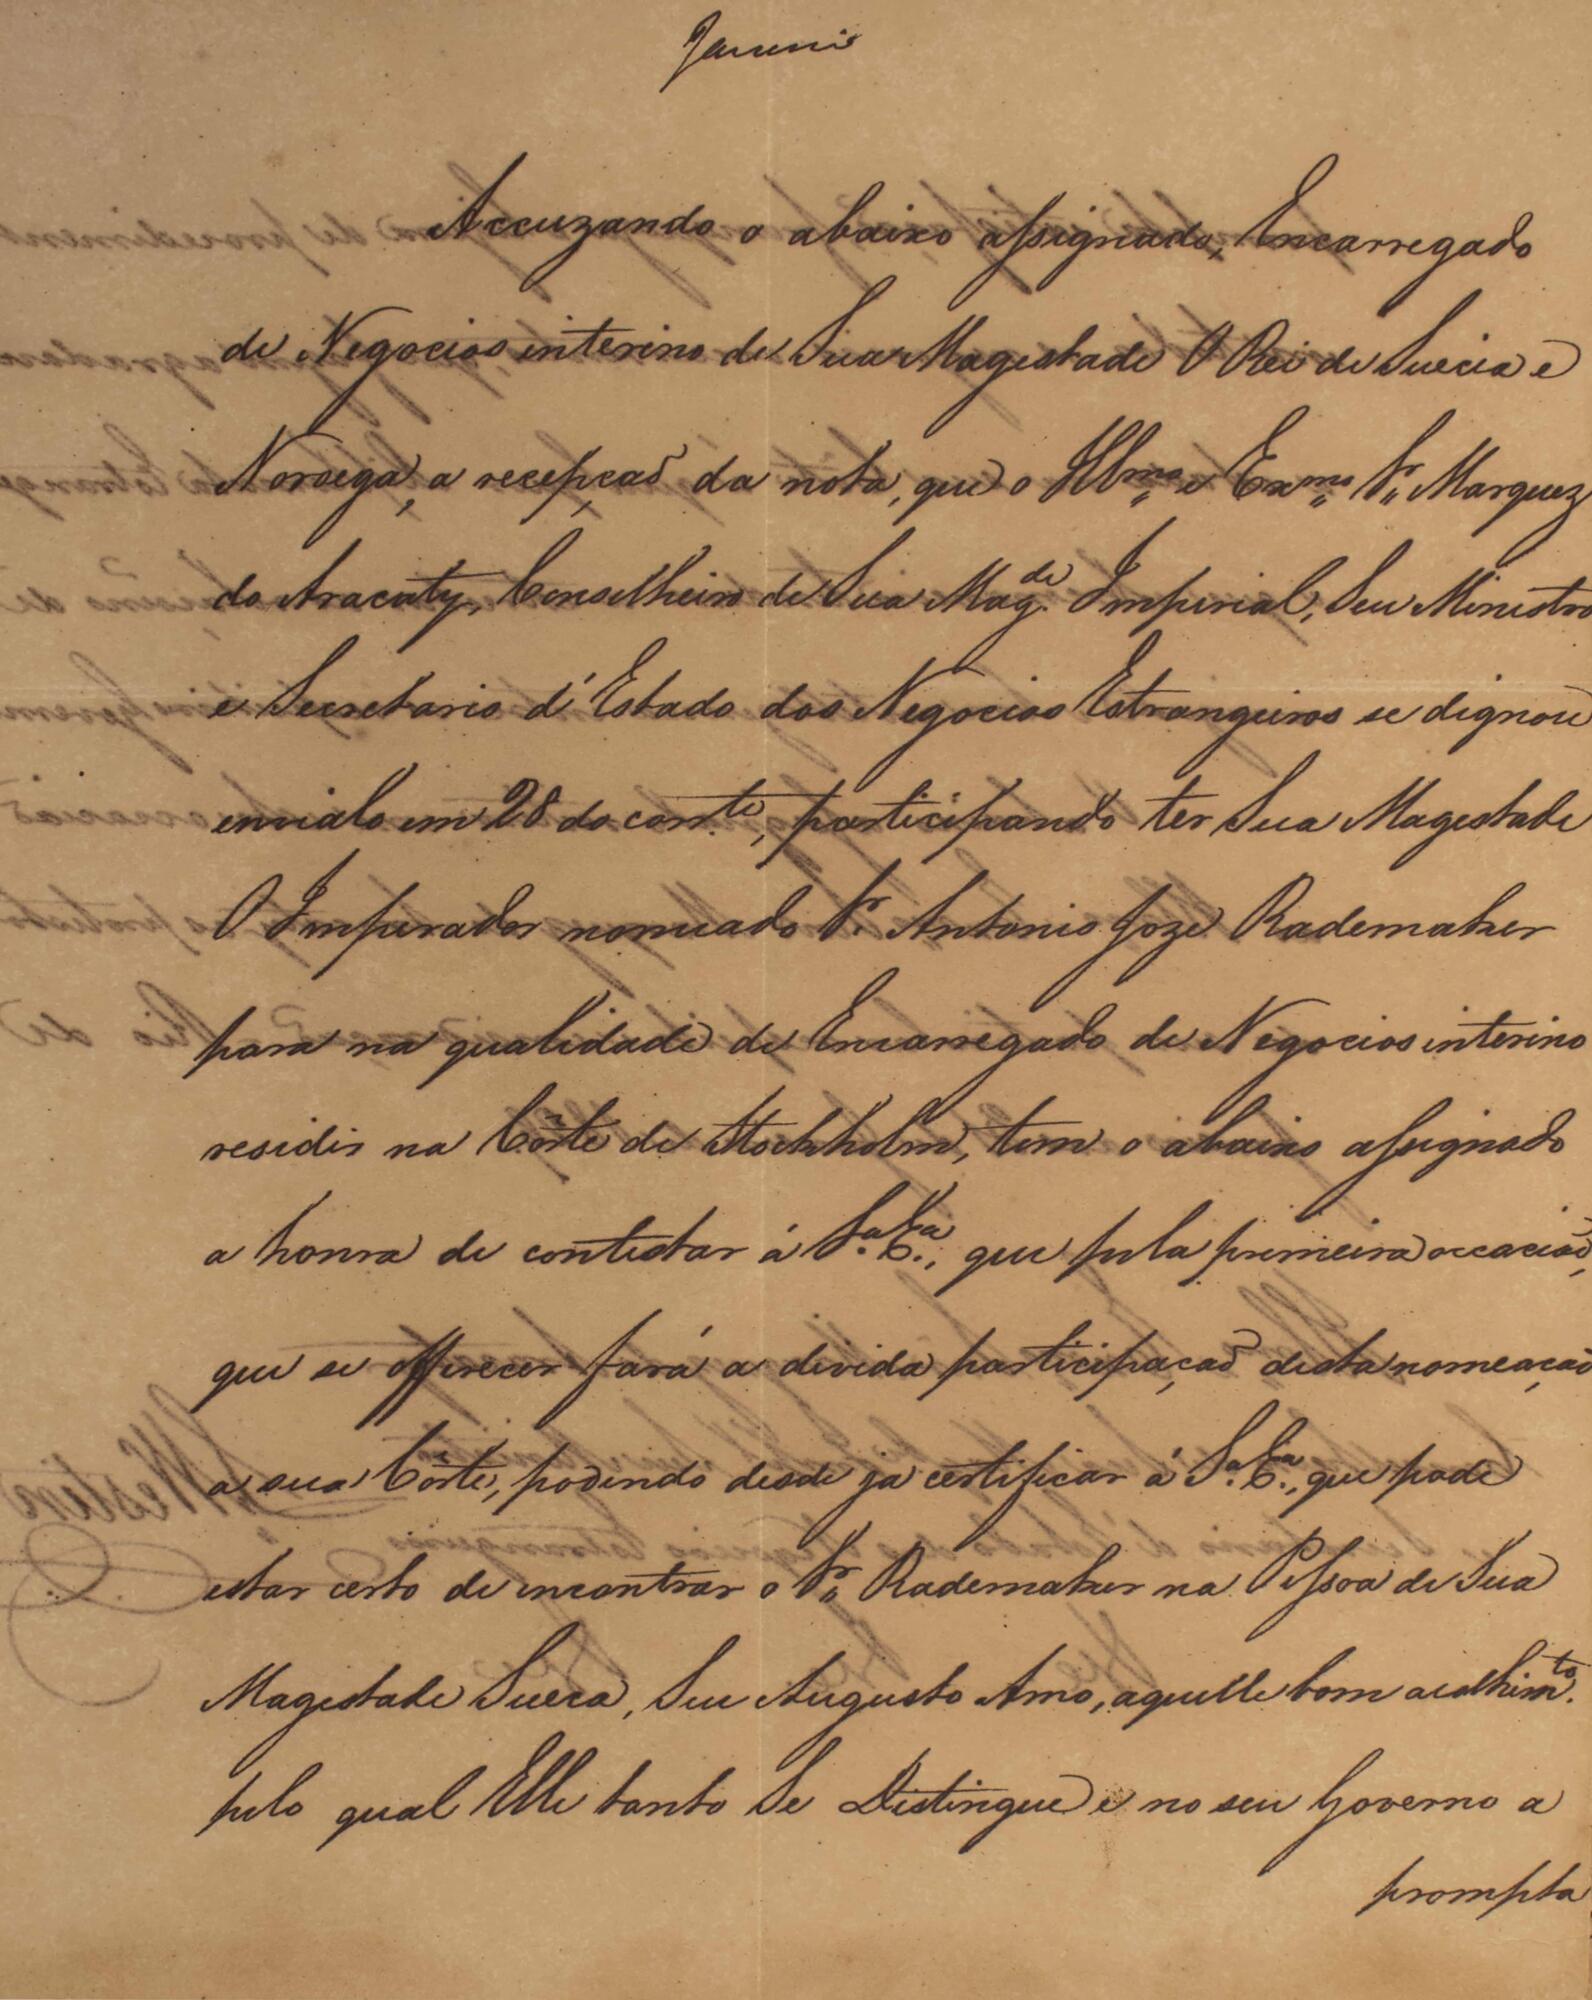 Accuzando o abaixo assignado, Encarregado
de Negocios interino de Sua Magestade O Rei de Suecia e
Noroega, a recepçaõ da nota, que o Illmo e Exmo Sr Marquez
do Aracaty, Conselheiro de Sua Magde Imperial, Seu Ministro
e Secretario d'Estado dos Negocios Estrangeiros se dignou
envialo em 28 do corrte, participando ter Sua Magestade
O Imperador nomeado Sr. Antonio Joze Rademaker
para na qualidade de Encarregado de Negocios interino
residir na Côrte de Stockholm, tem o abaixo assignado
a honra de contestar á Sa. Ea., que pela primeira occaciaõ,
que se offerecer fará a devida participaçaõ desta nomeaçaõ
a sua Côrte, podendo desde ja certificar á Sa. Ea., que pode
estar certo de encontrar o Sr Rademaker na Pessoa de Sua
Magestade Sueca, Seu Augusto Amo, aquelle bom acolhimto.
pelo qual Elle tanto Se Distingue e no seu Governo a
prompta